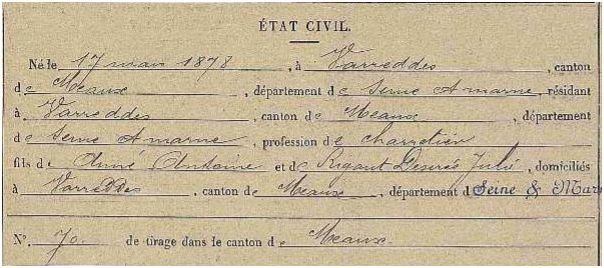 ÉTAT CIVIL.
Né le 17 mars 1878, à Varreddes, canton
de Meaux, département de Seine & marne, résidant
à Varreddes, canton de Meaux, département
de Seine & marne, profession de charretier
fils de Anné Antoine et de Rigaut Desirée Julie, domiciliés
à Varreddes, canton de Meaux, département d Seine & Mar
N° 70 de tirage dans le canton de Meaux.